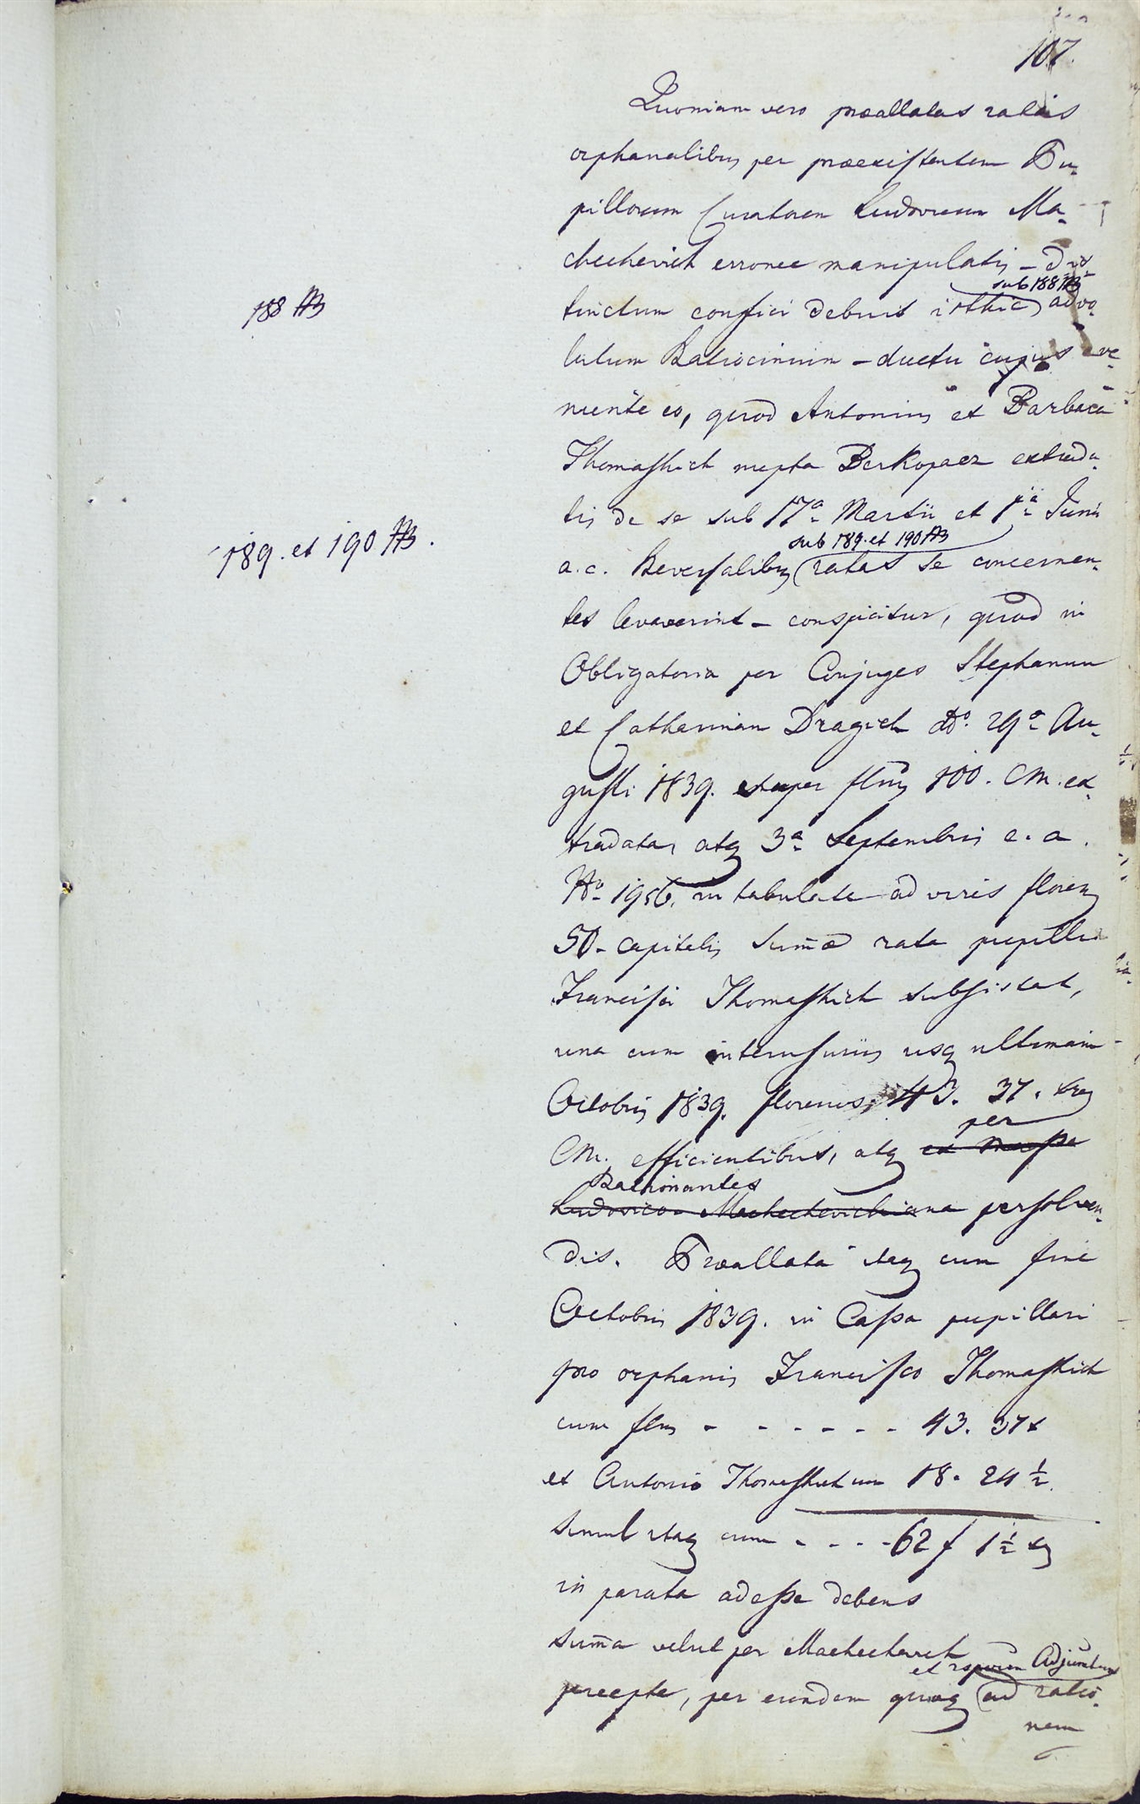 107.
Quoniam vero praeallatas ratas
orphanalibus per praeexistentem Pu-
pillorum Curatorem Ludovicum Ma-
chechevich erronee manipulatis – dis-
sub 188 AB
188 AB
tinctum confici debuit isthic advo-
lutum Ratiocinium – ductu cujus eve-
niente eo, quod Antonius et Barbara
Thomashich nupta Berkopacz extrada-
tis de se sub 17a Martii et 1a Junii
sub 189. et 190 AB
189. et 190 AB.
a. c. Reversalibus ratas se concernen-
tes levaverint – conspicitur, quod in
Obligatoria per Conjuges Stephanum
et Catharinam Dragich ddo. 29a Au-
gusti 1839. super flnis 100. CM. ex-
tradata, atq 3a Septembris e. a.
No 1956. intabulata ad vires floren
50– capitalis Sumae rata pupilli
Francisci Thomashich subsistat,
una cum interusuriis usq ultimam
Octobris 1839. florenis 43. 37. xrez
per
CM. efficientibus, atq ex Massa
Rationantes
Ludovico Machechevichiana persolven-
dis. Praeallata itaq cum fine
Octobris 1839. in Cassa pupillari
pro orphanis Francisco Thomashich
cum flnis - - - - - - 43. 37x
et Antonio Thomashich cum 18. 24 1/2.
simul itaq cum - - - - 62 f 1 1/2 x
in parata adesse debens
Suma velut per Machechevich
et Adjunctum
percepta, per eundem quoq ad ratio-
nem